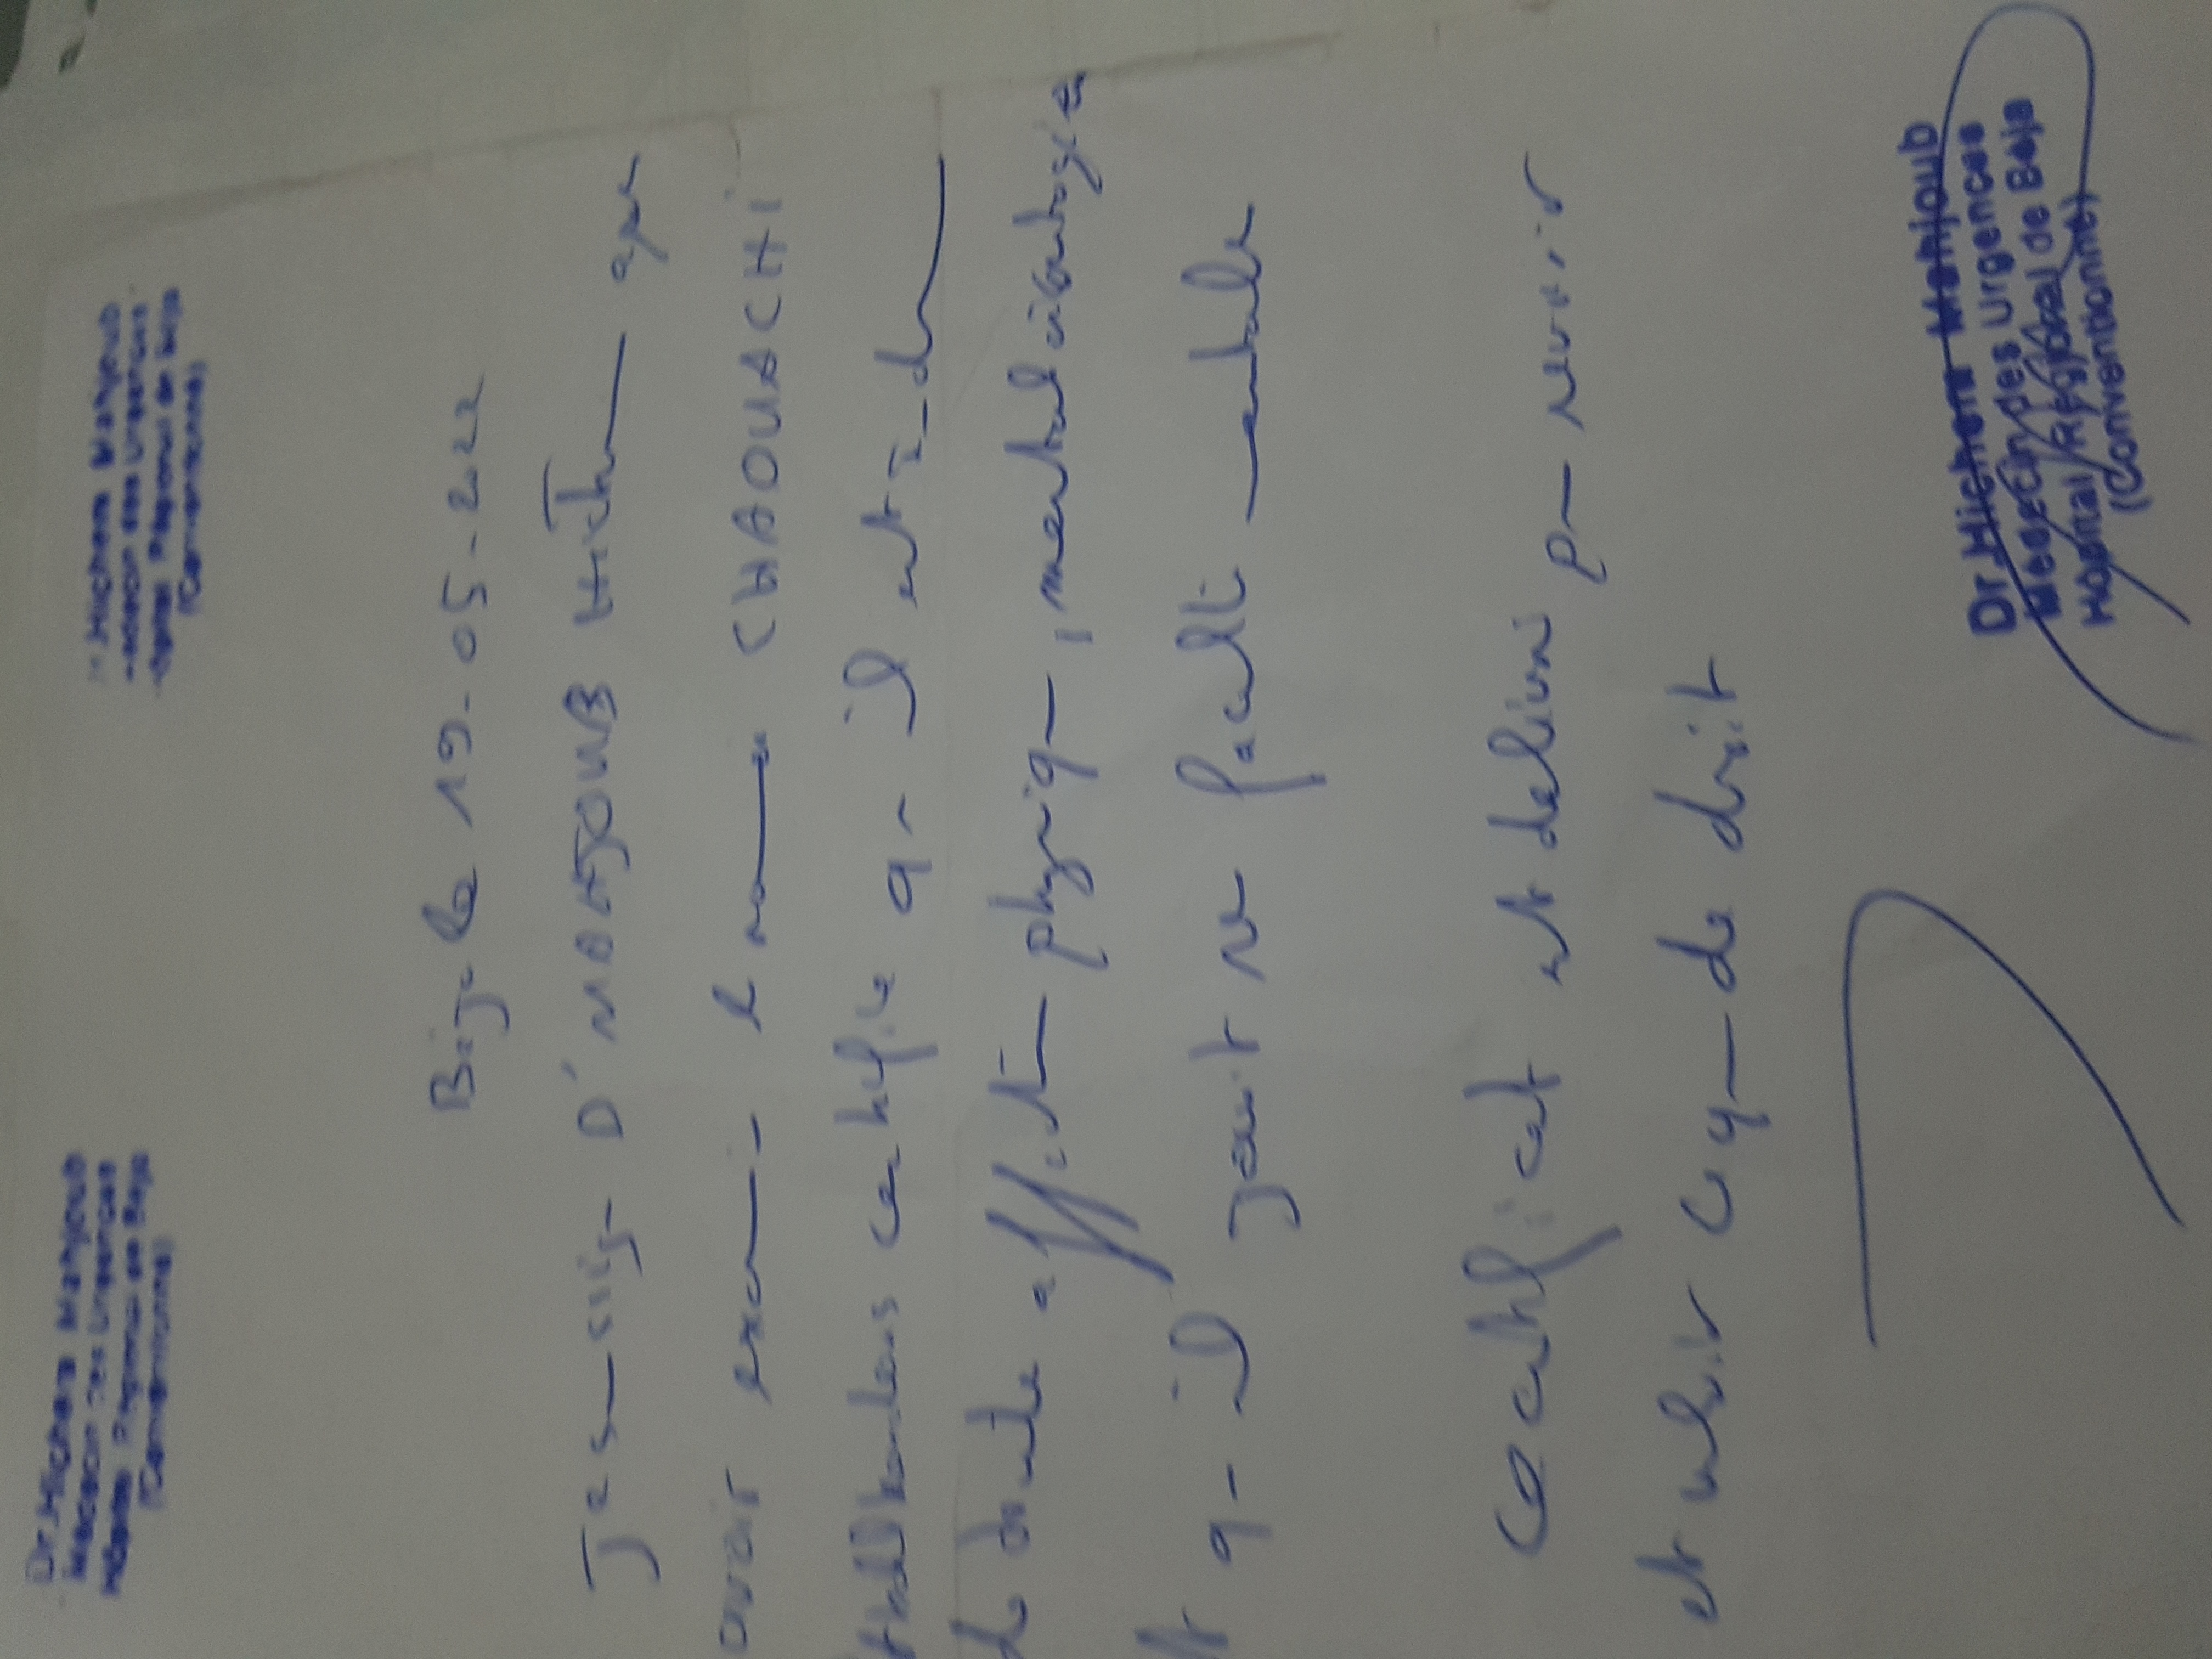 Dr Hichem Mahjoub
Médecin des Urgences
Hôpital Régional de Beja
(Conventionné)
Hichem Mahjoub
des Urgences
Régional de Beja
(Conventionné)
Beja le 19-05-2022
Je soussigné Dr MAHJOUB Hichem après
avoir examiné le nommé CHAOUACHI
certifie qu'il est indemne
de toute affection physique, mentale
et qu'il jouit de facultés mentales
Ce certificat est délivré pour servir
et valoir ce que de droit
Dr Hichem Mahjoub
Médecin des Urgences
Hôpital Régional de Beja
(Conventionné)